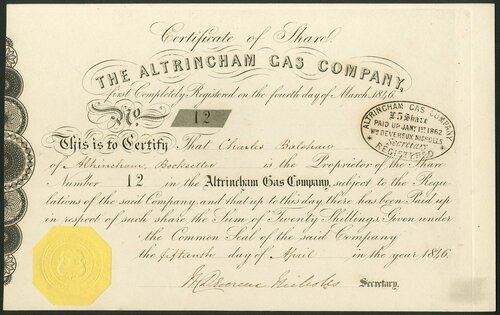 Certificate of Share.
THE ALTRINCHAM GAS COMPANY,
first Completely Registered on the fourth day of March, 1846.
No 12
ALTRINCHAM GAS COMPANY
£5 Share
PAID UP JANY 1ST 1862
WM DEVEREUX NICHOLLS
Secretary
REGISTERED
This is to Certify That Charles Balshaw
of Altrincham, Bookseller is the Proprietor of the Share
Number 12 in the Altrincham Gas Company, subject to the Regu-
lations of the said Company and that up to this day there has been Paid up
in respect of such share the Sum of Twenty Shillings. Given under
the Common Seal of the said Company
the fifteenth day of April in the year 1846.
Secretary.